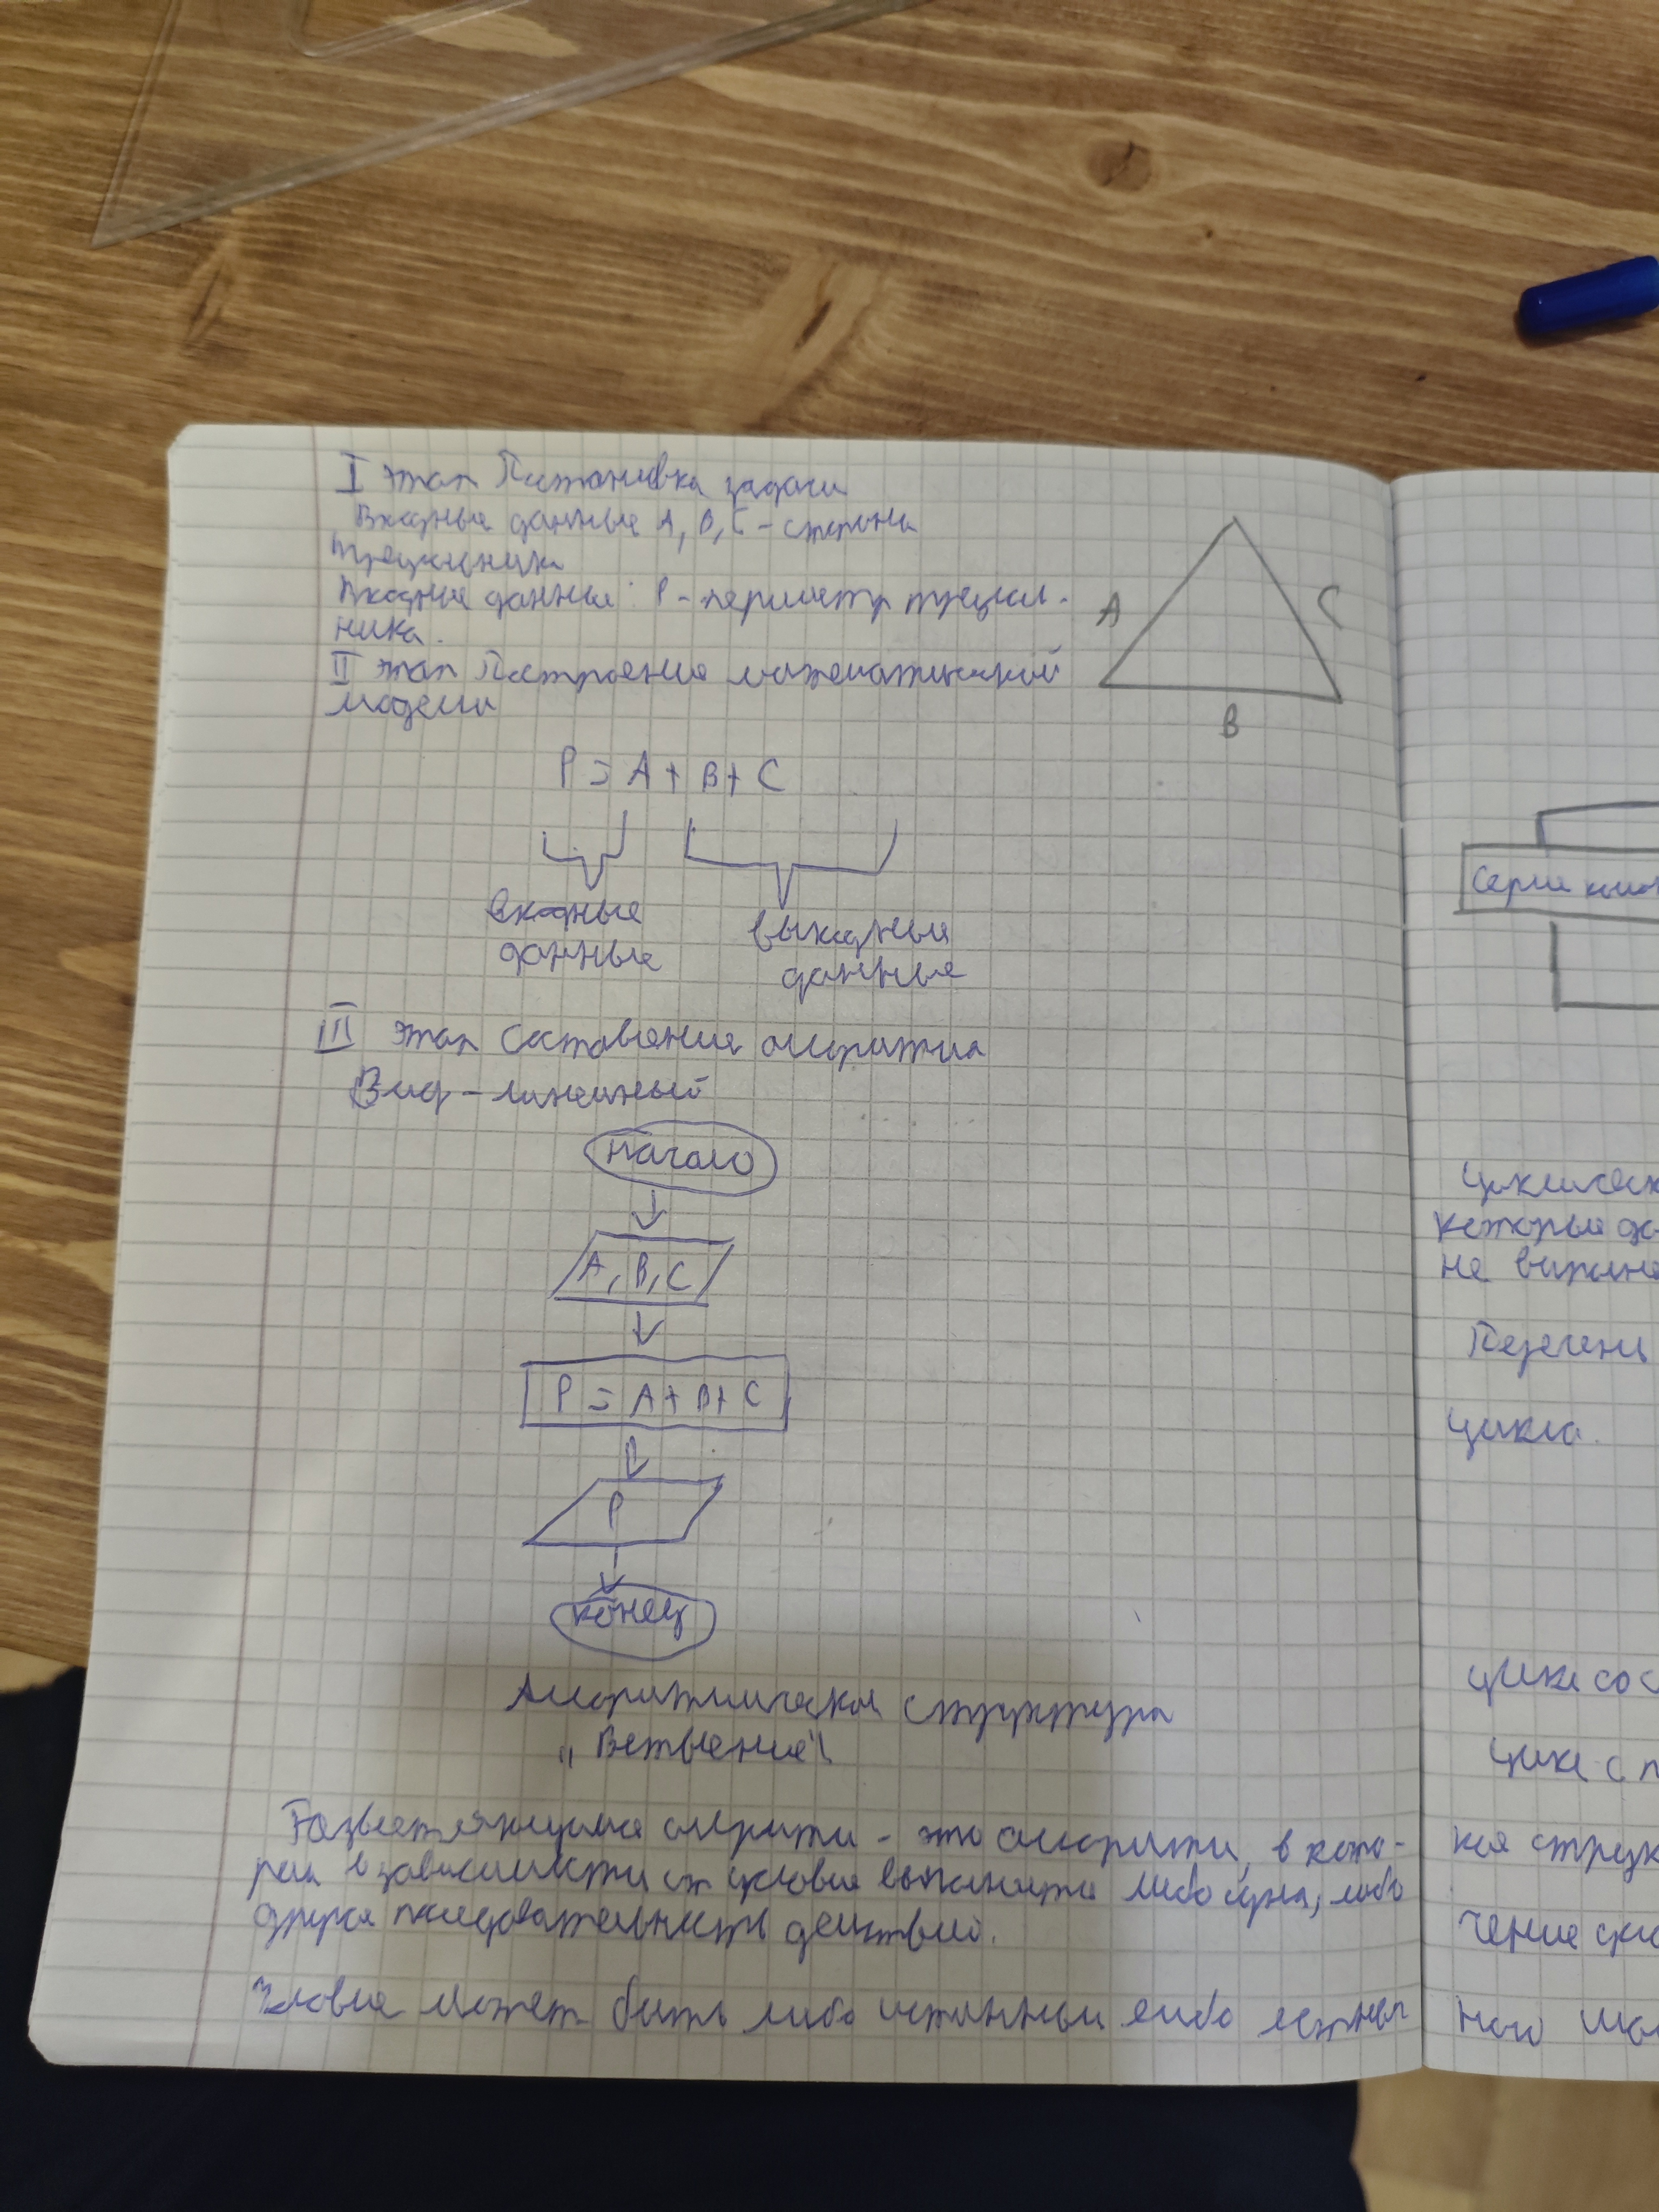 I этап Постановка задачи
Входные данные A, B, C – стороны
треугольника
Входные данные: P – периметр треуголь-
ника.
II этап Построение математической
модели
A
C
B
P = A + B + C
входные
данные
выходные
данные
III этап Составление алгоритма
Вид – линейный
начало
A, B, C
P = A + B + C
P
конец
Алгоритмическая структура
„Ветвление"
алгоритм – это алгоритм, в кото-
ром в зависимости от условия либо одна, либо
другая последовательность действий.
Условие может быть либо истинным либо ложным
Серия
Циклическ
которые до
не выполне
Перечень
цикла.
цикл со с
цикл с п
кая струк
чение
ного